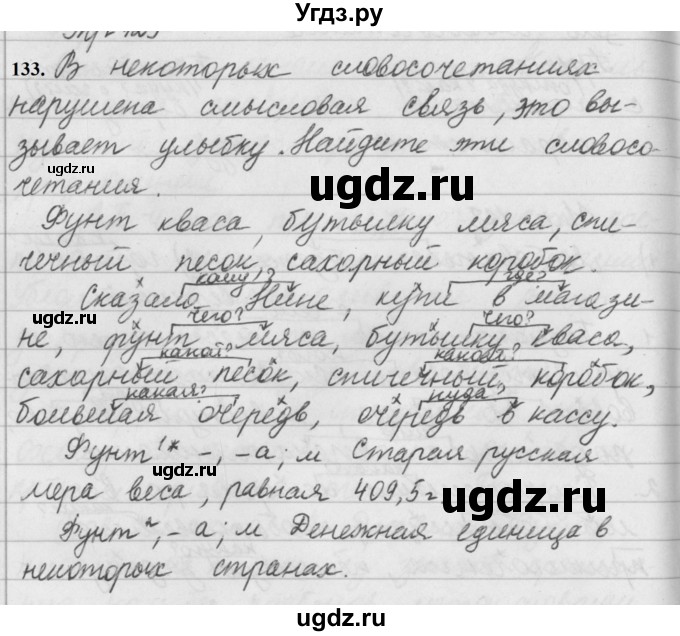 Угдз.ру
133. В некоторых словосочетаниях
нарушена смысловая связь, это вы-
зывает улыбку. Найдите эти словосо-
четания.
ugdz.ru
ugdz.ru
Фунт кваса, бутылку мяса, спи-
чечный песок, сахарный коробок.
кому? где?
Сказала Нине, купи в магази-
ugdz.ru
чего? чего?
не, фунт мяса, бутылку кваса,
какой? какая?
сахарный песок, спичечный коробок,
какая? куда?
большая очередь, очередь в кассу.
Фунт¹* -, -а; м Старая русская
мера веса, равная 409,5 г
ugdz.ru
ugdz.ru
Фунт², -а; м Денежная единица в
некоторых странах.
ugdz.ru
ugdz.ru